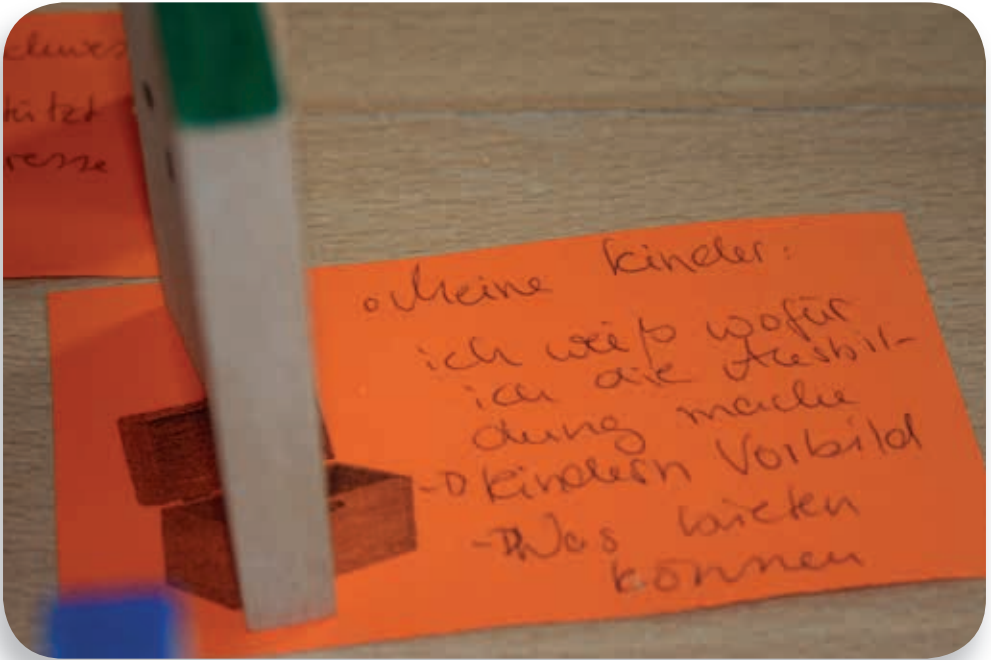 tützt
resse
• Meine kinder:
ich weiß wofür
ich die Ausbil-
dung mache
-D kindern Vorbild
-D Was bieten
können